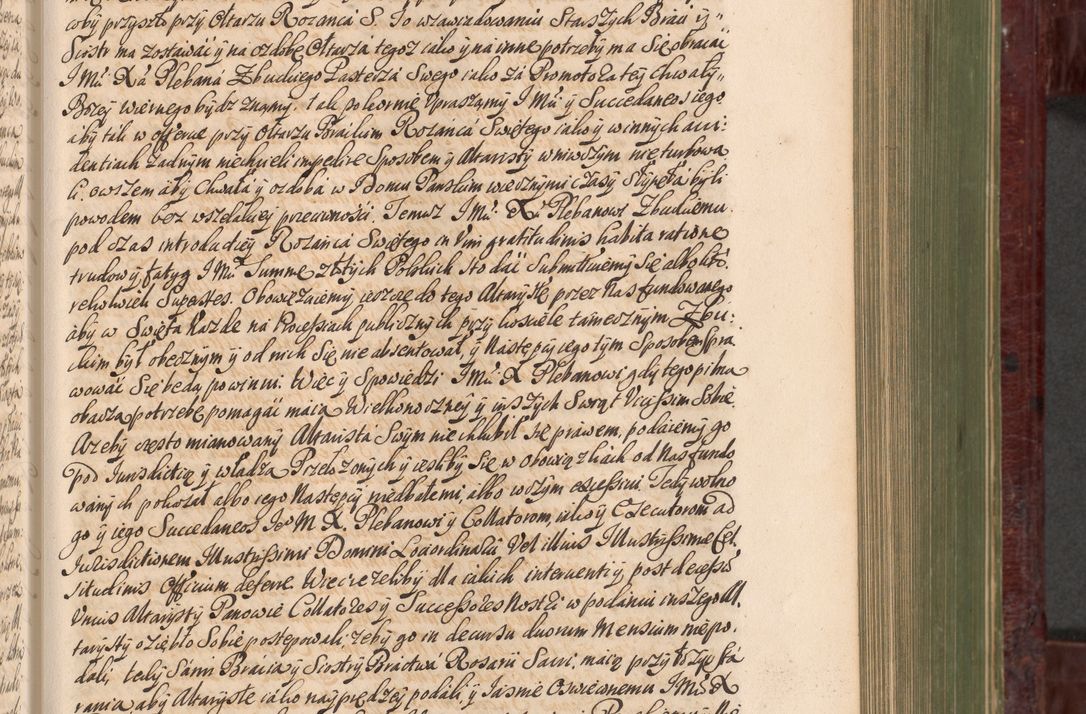 coby przyszło przy Ołtarzu Rozańca S. To w zawiadowaniu Starszych Braci y
Siostr ma zostawać y na ozdobę Ołtarza tegoz iako y na inne potrzeby ma się obracać
I Mći Xa Plebana Zbuckiego Pasterza Swego iako za Promotora tey Chwały
Bozey wiernego bydz znamy, tak pokornie Upraszamy I Mći y Succedaneos iego
aby tak w Offercie przy Ołtarzu Brackim Rozańca Swiętego iako y w innych acci
dentiach zadnym niechcieli impedire Sposobem y Altarysty w niwczym nie turbowa
li, owszem aby Chwała y ozdoba w Domu Panskim wiecznymi czasy słynęła byli
powodem bez wszelakiey przeciwnosci. Temuz I Mći X Plebanowi Zbuckiemu
pod czas introductiey Rozańca Swiętego in Vim gratitudinis habita ratione
trudow y fatyg I Mći Summę złotych Polskich sto dać Submittuiemy Się albo kto
kolwiek Superstes. Obowięzuiemy ieszcze do tego Altarystę przez Nas fundowanego
aby w Swięta Kazde na Processiach publicznych przy kosciele tamecznym Zbu
ckim był obecznym y od nich Się nie absentował, y Następcy iego tym Sposobem spra
wować Się będą powinni. Więc y Spowiedzi I Mći X Plebanowi gdy tego pilna
okaza potrzebę pomagać maią Wielkonoczney y inszych Swiąt Vicissim Sobie.
A zeby często mianowany Altarista Swym nie chlubił się prawem, podaiemy go
pod Iurisdictią y władzą Przełozonych y iesliby Się w obowiązkach od Nas fundo
wanych pokazał albo iego Następcy niedbałemi, albo w czym excessivi. Tedy wolno
go y iego Succedaneos Ieo M X. Plebanowi y Collatorom, iako y Executorom ad
Iurisdictionem Illustrissimi Domini Loci ordinarii Vel illius Illustrissimæ Cel
situdinis Officium deferre. Więc iezeliby dla iakich interventiy post decessū
Unius Altarysty Panowie Collatores y Successores Nostri w podaniu inszego Al
tarysty oziębło Sobie postępowali, zeby go in decursu duorum Mensium nie po
dali, tedy Sami Bracia y Siostry Bractwa Rosarii Sacri, maią przy tozyc sta
rania aby Altarystę iako nayprędzey podali, y Iasnie Oswieconemu I Mći X